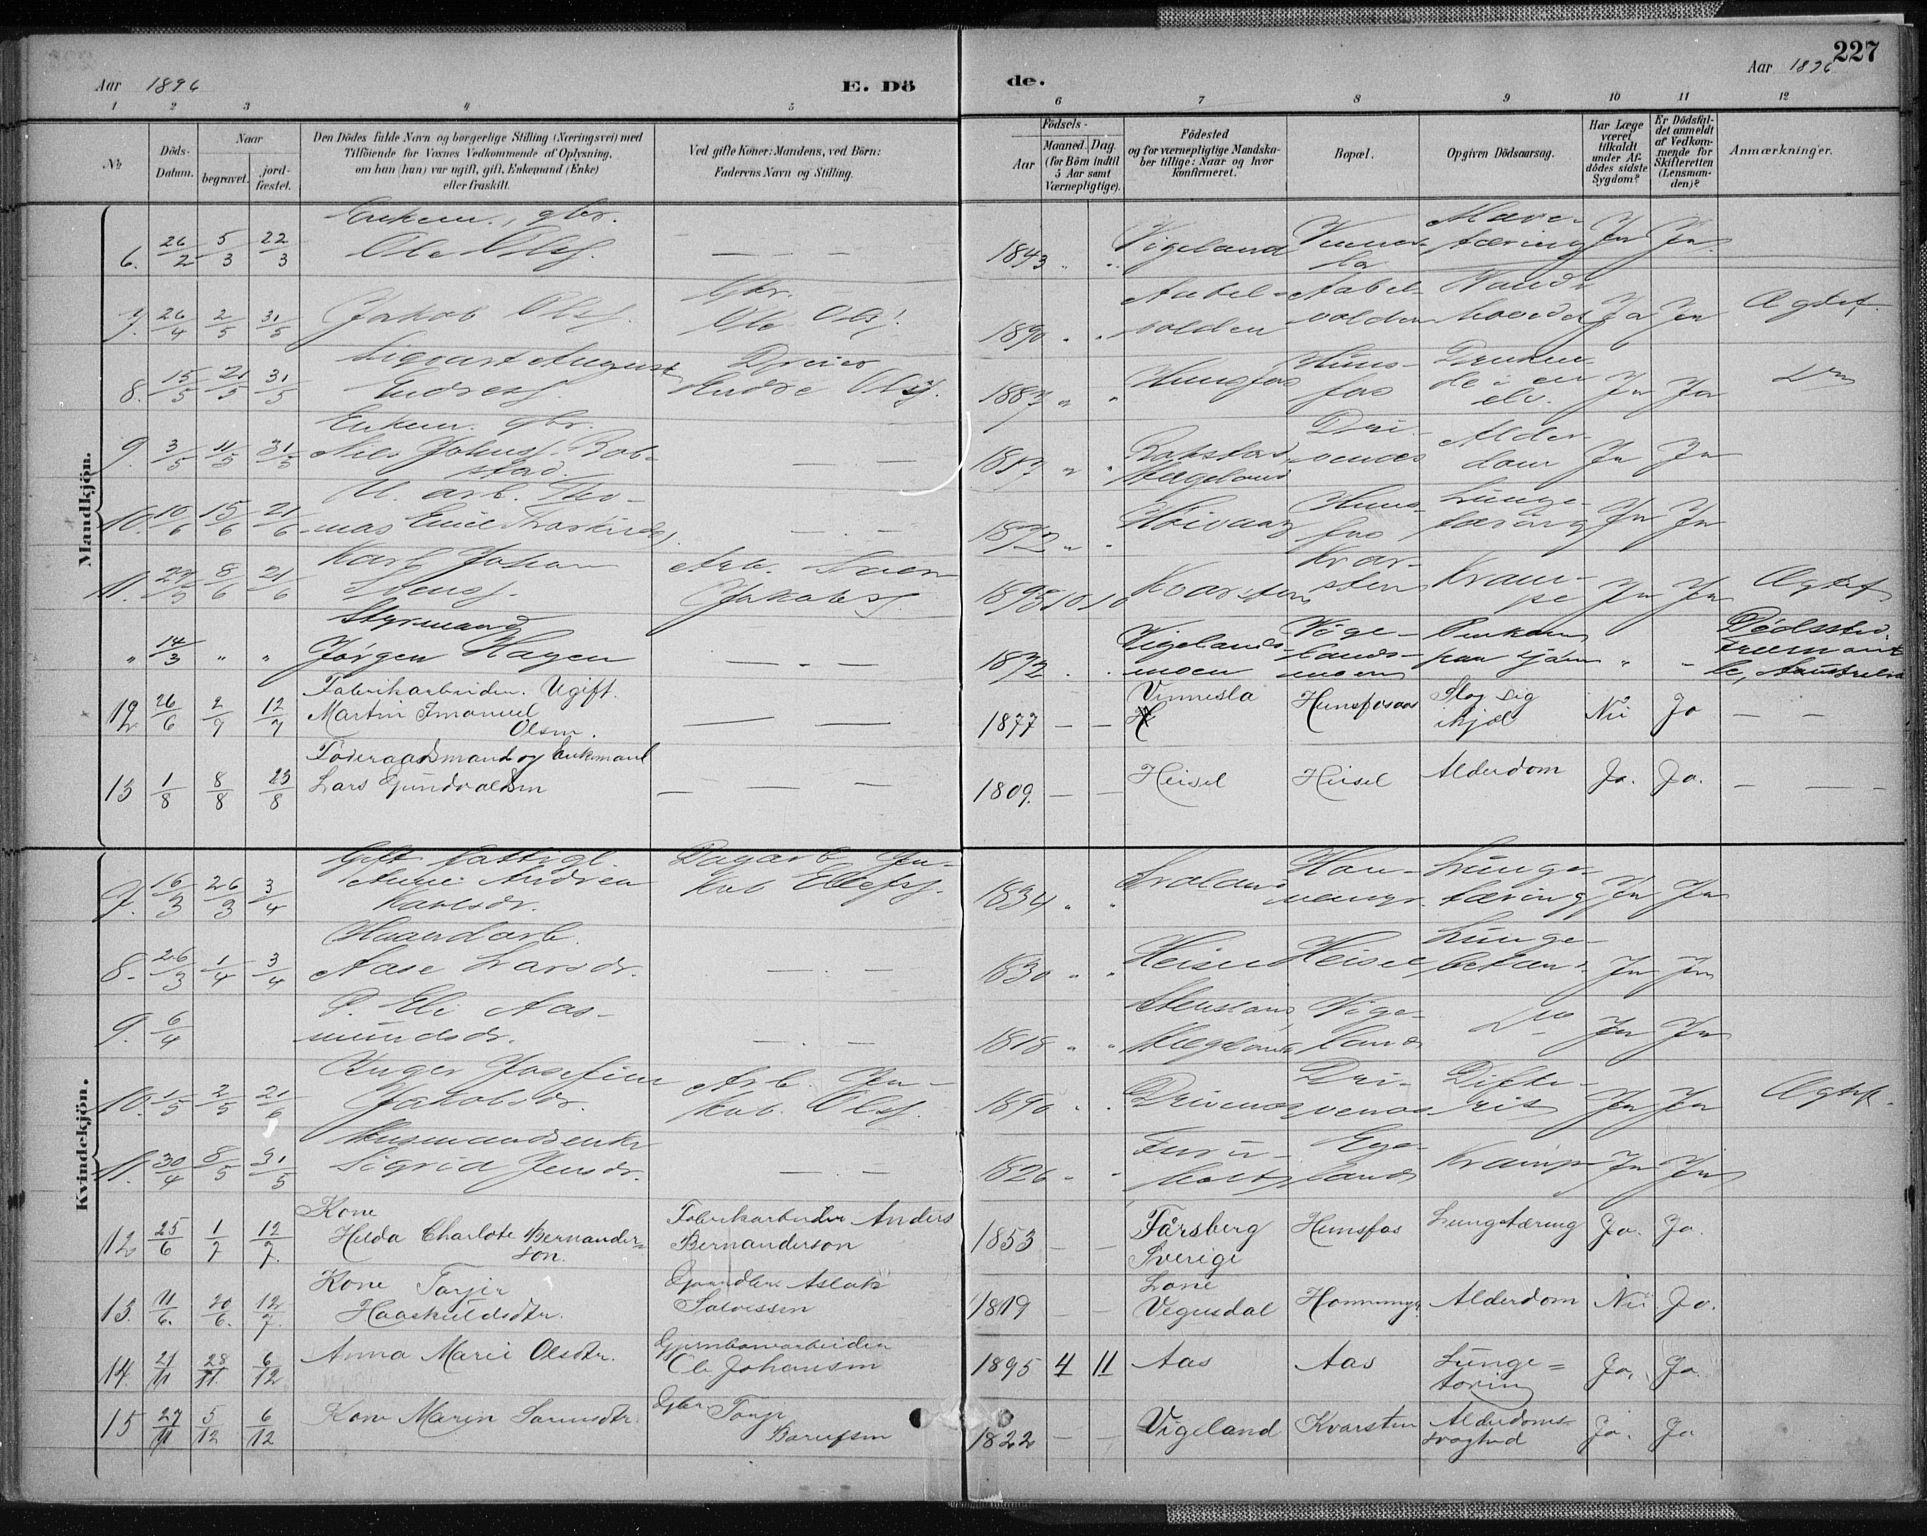 227
Aar 1896 E. Dö de. Aar 1896
1 2 3 4 5 6 7 8 9 10 11 12
№
Döds-Datum.
Naar
begravet.
jord-fæstet.
Den Dödes fulde Navn og borgerlige Stilling (Næringsvei) med
Tilföiende for Voxnes Vedkommende af Oplysning,
om han (hun) var ugift, gift, Enkemand (Enke)
eller fraskilt.
Ved gifte Koner: Mandens, ved Börn:
Faderens Navn og Stilling.
Födsels-
Aar
Maaned. Dag.
(for Börn indtil
5 Aar samt
Værnepligtige).
Födested
og for værnepligtige Mandska-
ber tillige: Naar og hvor
konfirmeret.
Bopæl.
Opgiven Dödsaarsag.
Har Læge
været
tilkaldt
under Af-
dödes sidste
Sygdom?
Er Dödsfal-
det anmeldt
af Vedkom-
mende for
Skifteretten
(Lensman-
den)?
Anmærkninger.
Mandkjön.
Enkem., gbr.
6. 26/2 5/3 22/3 Ole Olsf. — — — 1843 " " Vigeland Vennesla Mavetæring Ja Ja
7. 26/4 2/5 31/5 Jakob Olsf. Gbr. Ole Olsf. 1890 " " Aabelvolden Aabelvolden Vandi hovedet Ja Ja Ægtef.
8. 15/5 21/5 31/5 Sigvart August Endresf. Dreier Andre Olsf. 1887 " " Hunsfos Hunsfos Druknede i en elv. Ja Ja Do
Enkem. gbr.
9. 3/5 11/5 31/5 Nils Johnsf. Robstad — — 1817 " " Robstad, Øvrebø Drivenæs Alderdom Ja Ja
10. 10/6 15/6 21/6 U. arb. Thomas Emil — — 1872 " " Høivaag Hunsfos Lungetæring Ja Ja
11. 27/5 8/6 21/6 Karl Johan Arb. Sven Jakobsf. 1895 10 10 Kvarsten Kvarsten Krampe Ja Ja Ægtef
" 14/3 " " Styrmand Jørgen Hagen — - — 1872 . . Vigelandsmoen Vigelandsmoen paa sjøen " " Dødssted: Fremantle, Australia
12 26/6 2/7 12/7 Fabrikarbeider. Ugift. Martin Imanuel Olsen. — — 1877 — — Vennesla Hunsfosaas Slog sig ihjel Nei Ja — —
13 1/8 8/8 23/8 Föderaadsmand og Enkemand Lars Gundvaldsen — — — 1809. — — Heisel Heisel Alderdom Ja. Ja. — —
Kvindekjön.
7. 16/3 26/3 3/4 Gift fattigl. Anne Andrea Karlsdr. Dagarb. Jakob Ellefsf. 1834 " " Lungetæring Ja Ja
8. 26/3 1/4 3/4 Haandarb. Aase Larsdr. — — 1830 " " Heisel Heisel Lungebetænd. Ja Ja
9. 6/4 F. Eli Aasmundsdr. — — 1818 " " Vigeland Do Ja Ja
10. 1/5 2/5 21/6 Inger Josefine Jakobsdr. Arb. Jakob Olsf. 1890 " " Drivenes Drivenes Difterit Ja Ja Ægtef.
11. 30/4 8/5 31/5 Husmandsenke Sigrid Jensdr. — — 1826 " " Furuholt Egeland Krampe Ja Ja
12 25/6 1/7 12/7. Kone Hilda Charlote Bernanderson. Fabrikarbeider Anders Bernanderson 1853 — — Färsberg Sverige Hunsfos Lungetæring Ja. Ja.
13. 11/6. 20/6. 12/7. Kone Torjer Haaskuldsdtr. Aslak Salvessen 1819 — — Lone Vegusdal Alderdom Nei Ja.
14. 21/11 28/11. 6/12 Anna Marie Olsdtr. Gjernbanearbeider Ole Johansen 1895 4 11 Aas Aas Lungetæring Ja, Ja.
15 27/11 5/12 6/12 Kone Maren Gbr Torje 1822 — — Vigeland Kvarsten Alderdomssvaghed Ja. Ja